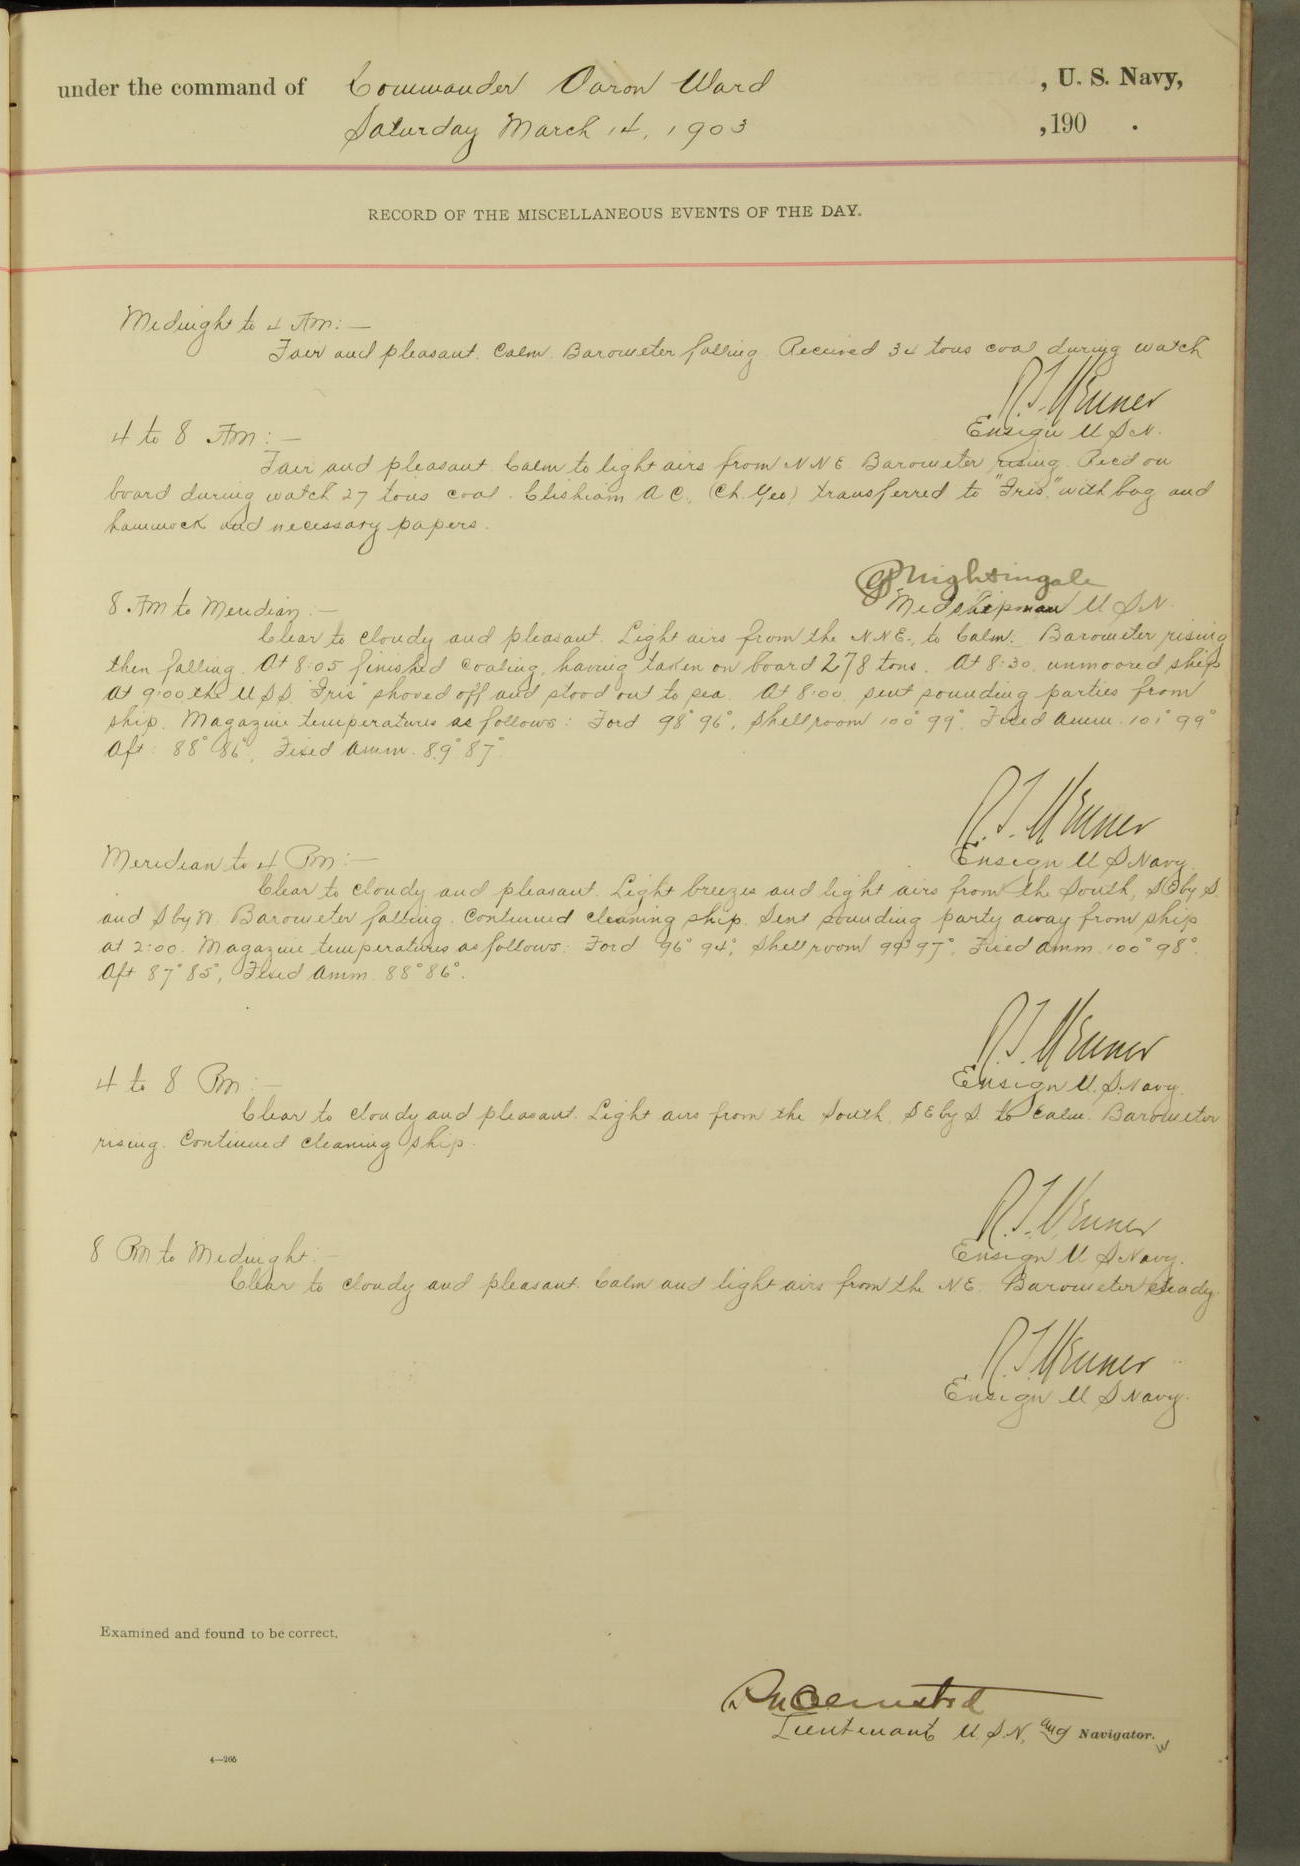 under the command of Commander Aaron Ward , U. S. Navy,
Saturday March 14, 1903 ,190 .
RECORD OF THE MISCELLANEOUS EVENTS OF THE DAY.
Midnight to 4 AM:—
Fair and pleasant. Calm. Barometer falling. Received 34 tons coal during watch
Ensign U S N.
4 to 8 AM:—
Fair and pleasant. Calm to light airs from NNE. Barometer rising. Recd on
board during watch 27 tons coal. Clisham A C. (Ch. Yeo) transferred to "Iris," with bag and
hammock and necessary papers.
Nightingale
Midshipman U S N.
8 AM to Meridian:—
Clear to cloudy and pleasant. Light airs from the NNE., to Calm. Barometer rising
then falling. At 8:05 finished coaling, having taken on board 278 tons. At 8:30. unmoored ship
At 9:00 the U S S "Iris" shoved off and stood out to sea. At 8:00. sent sounding parties from
ship. Magazine temperatures as follows: Ford 98° 96°, Shellroom 100° 99°. Fixed Amm. 101° 99°
Aft: 88° 86°, Fixed Amm. 89° 87°.
Ensign U S Navy.
Meridian to 4 PM:—
Clear to cloudy and pleasant. Light breezes and light airs from the South, SE by S.
and S by W. Barometer falling. Continued cleaning ship. Sent sounding party away from ship
at 2:00. Magazine temperatures as follows: Ford 96° 94°, Shellroom 99° 97°. Fixed Amm. 100° 98°.
Aft 87° 85°, Fixed Amm. 88° 86°.
Ensign U. S. Navy.
4 to 8 PM:—
Clear to cloudy and pleasant. Light airs from the South, SE by S to Calm. Barometer
rising. Continued cleaning ship.
Ensign U S Navy.
8 PM to Midnight:—
Clear to cloudy and pleasant. Calm and light airs from the NE. Barometer steady.
Ensign U S Navy.
Examined and found to be correct.
Lieutenant U.S.N. and Navigator.
4—265